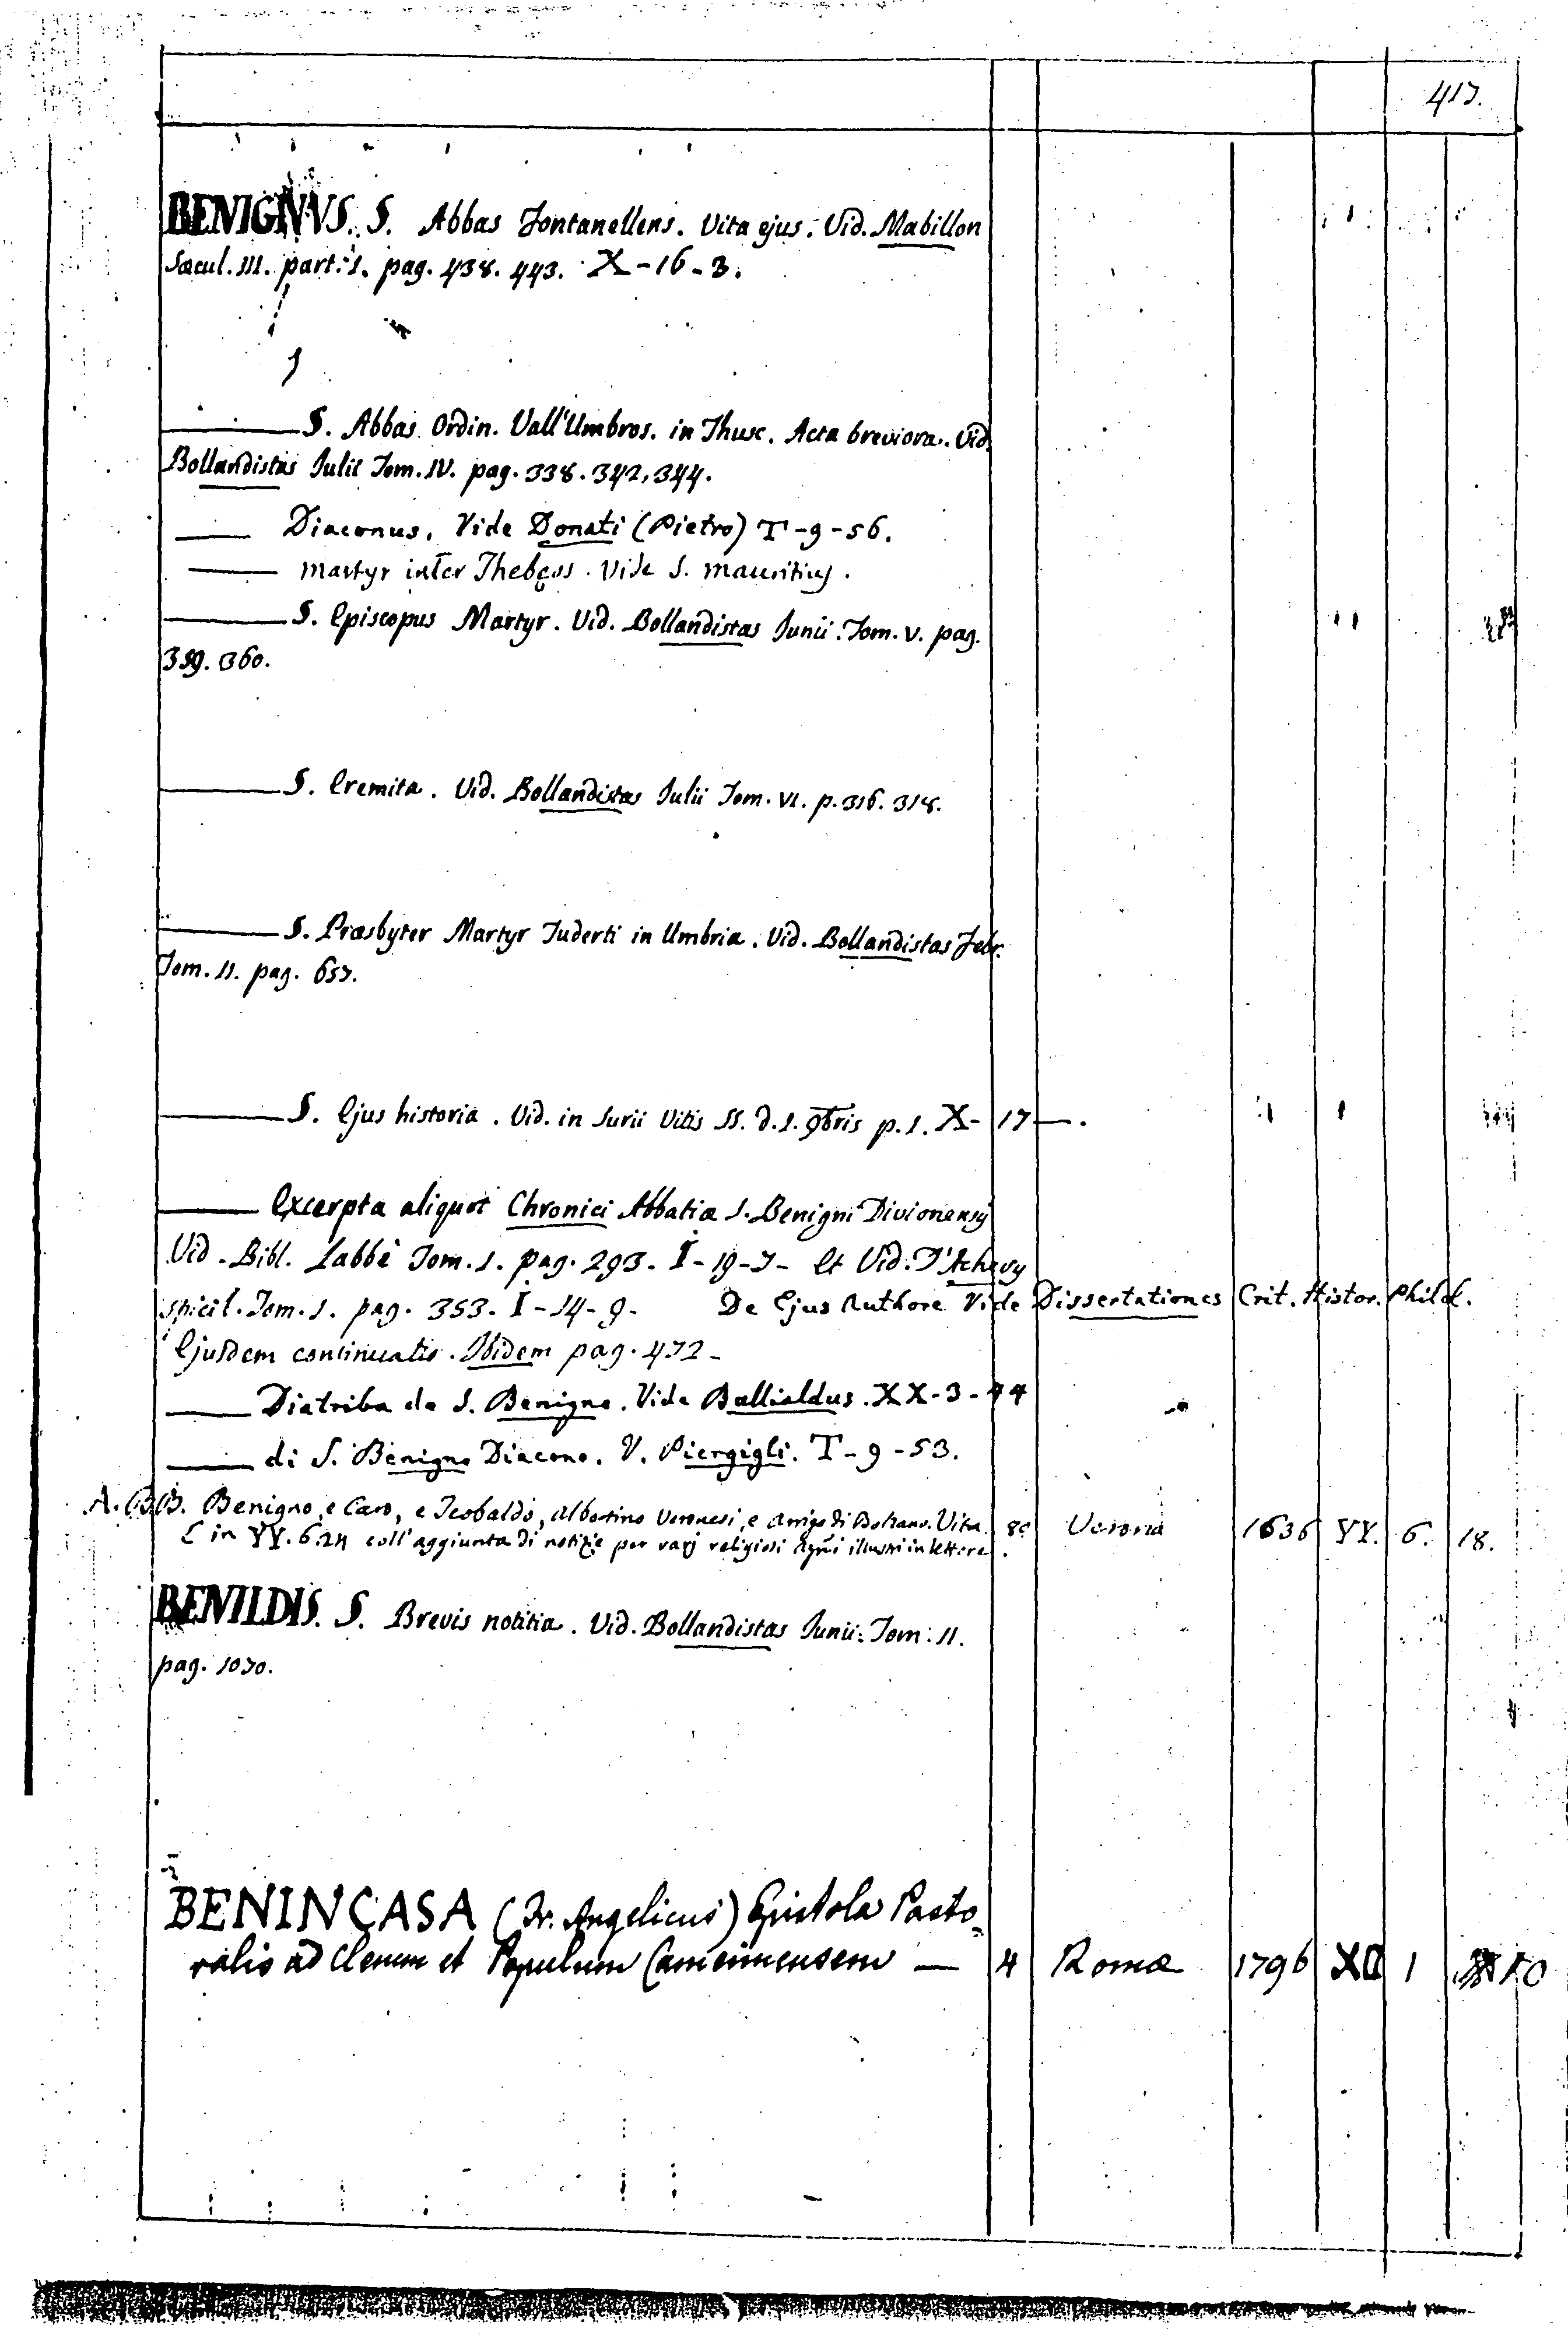 417.
BENIGNVS. S. Abbas Fontanellens. Vita ejus. Vid. Mabillon
Sæcul. III. part. 1. pag. 438. 443. X-16-3.
——— S. Abbas Ordin. Vall'Umbros. in Thusc. Acta breviora. Vid.
Bollandistas Julii Tom. IV. pag. 338. 342, 344.
——— Diaconus. Vide Donati (Pietro) T-9-56.
——— Martyr inter Thebeos. Vide S. Mauritius.
——— S. Episcopus Martyr. Vid. Bollandistas Junii. Tom. V. pag.
359. 360.
——— S. Eremita. Vid. Bollandistas Julii Tom. VI. p. 316. 318.
——— S. Præsbyter Martyr Tuderti in Umbria. Vid. Bollandistas Febr.
Tom. II. pag. 657.
——— S. Ejus historia. Vid. in Surii Vitis SS. d. 1. 9bris p. 1. X-17—.
——— Excerpta aliquot Chronici Abbatiæ S. Benigni Divionensis
Vid. Bibl. Labbè Tom. 1. pag. 293. I-19-7- et Vid. D'Achery
Spicil. Tom. 1. pag. 353. I-14-9- De Ejus Authore Vide Dissertationes Crit. Histor. Philol.
Ejusdem continuatio. Ibidem pag. 472-
——— Diatriba de S. Benigno. Vide Bullialdus. XX-3-44
——— di S. Benigno Diacono. V. Piergigli. T-9-53.
A. BB. Benigno, e Caro, e Teobaldo, Albertino Veronesi, e Arrigo di Bolzano. Vita. 8° Verona 1636 YY. 6. 18.
[ in YY. 6. 24 coll'aggiunta di notizie per varj religiosi illustri in lettere.
BENILDIS. S. Brevis notitia. Vid. Bollandistas Junii. Tom. II.
pag. 1070.
BENINCASA (Fr. Angelicus) Epistola Pasto-
ralis ad Clerum et Populum Camerinensem — 4 Romæ 1796 XII 1 50